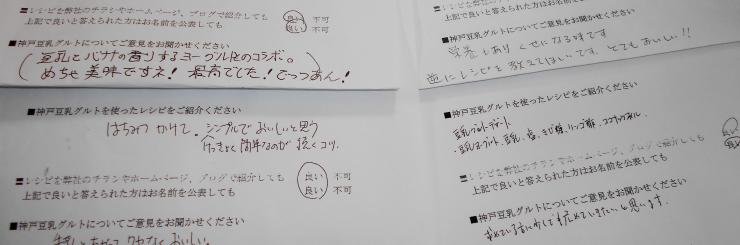 ■レシピを弊社のチラシやホームページ、ブログで紹介しても 良い 不可
上記で良いと答えられた方はお名前を公表しても 良い 不可
■神戸豆乳グルトについてご意見をお聞かせください
豆乳とバナナの香りするヨーグルトとのコラボ。
めちゃ美味ですえ! 最高でした! ごっつあん!
■神戸豆乳グルトを使ったレシピをご紹介ください
はちみつかけて、シンプルでおいしいと思う
けっきょく簡単なのが続くコツ。
■レシピを弊社のチラシやホームページ、ブログで紹介しても 良い 不可
上記で良いと答えられた方はお名前を公表しても 良い 不可
■神戸豆乳グルトについてご意見をお聞かせください
おいしい。
上記で良いと答えられた方はお名前を公表しても
■神戸豆乳グルトについてご意見をお聞かせください
栄養もあり くせになる味です
逆にレシピを教えてほしいです。とてもおいしい!!
■神戸豆乳グルトを使ったレシピをご紹介ください
豆乳、塩、きび糖、リンゴ酢、ココナッツオイル
■レシピを弊社のチラシやホームページ、ブログで紹介しても 良い
上記で良いと答えられた方はお名前を公表しても 良い
■神戸豆乳グルトについてご意見をお聞かせください
と思います。